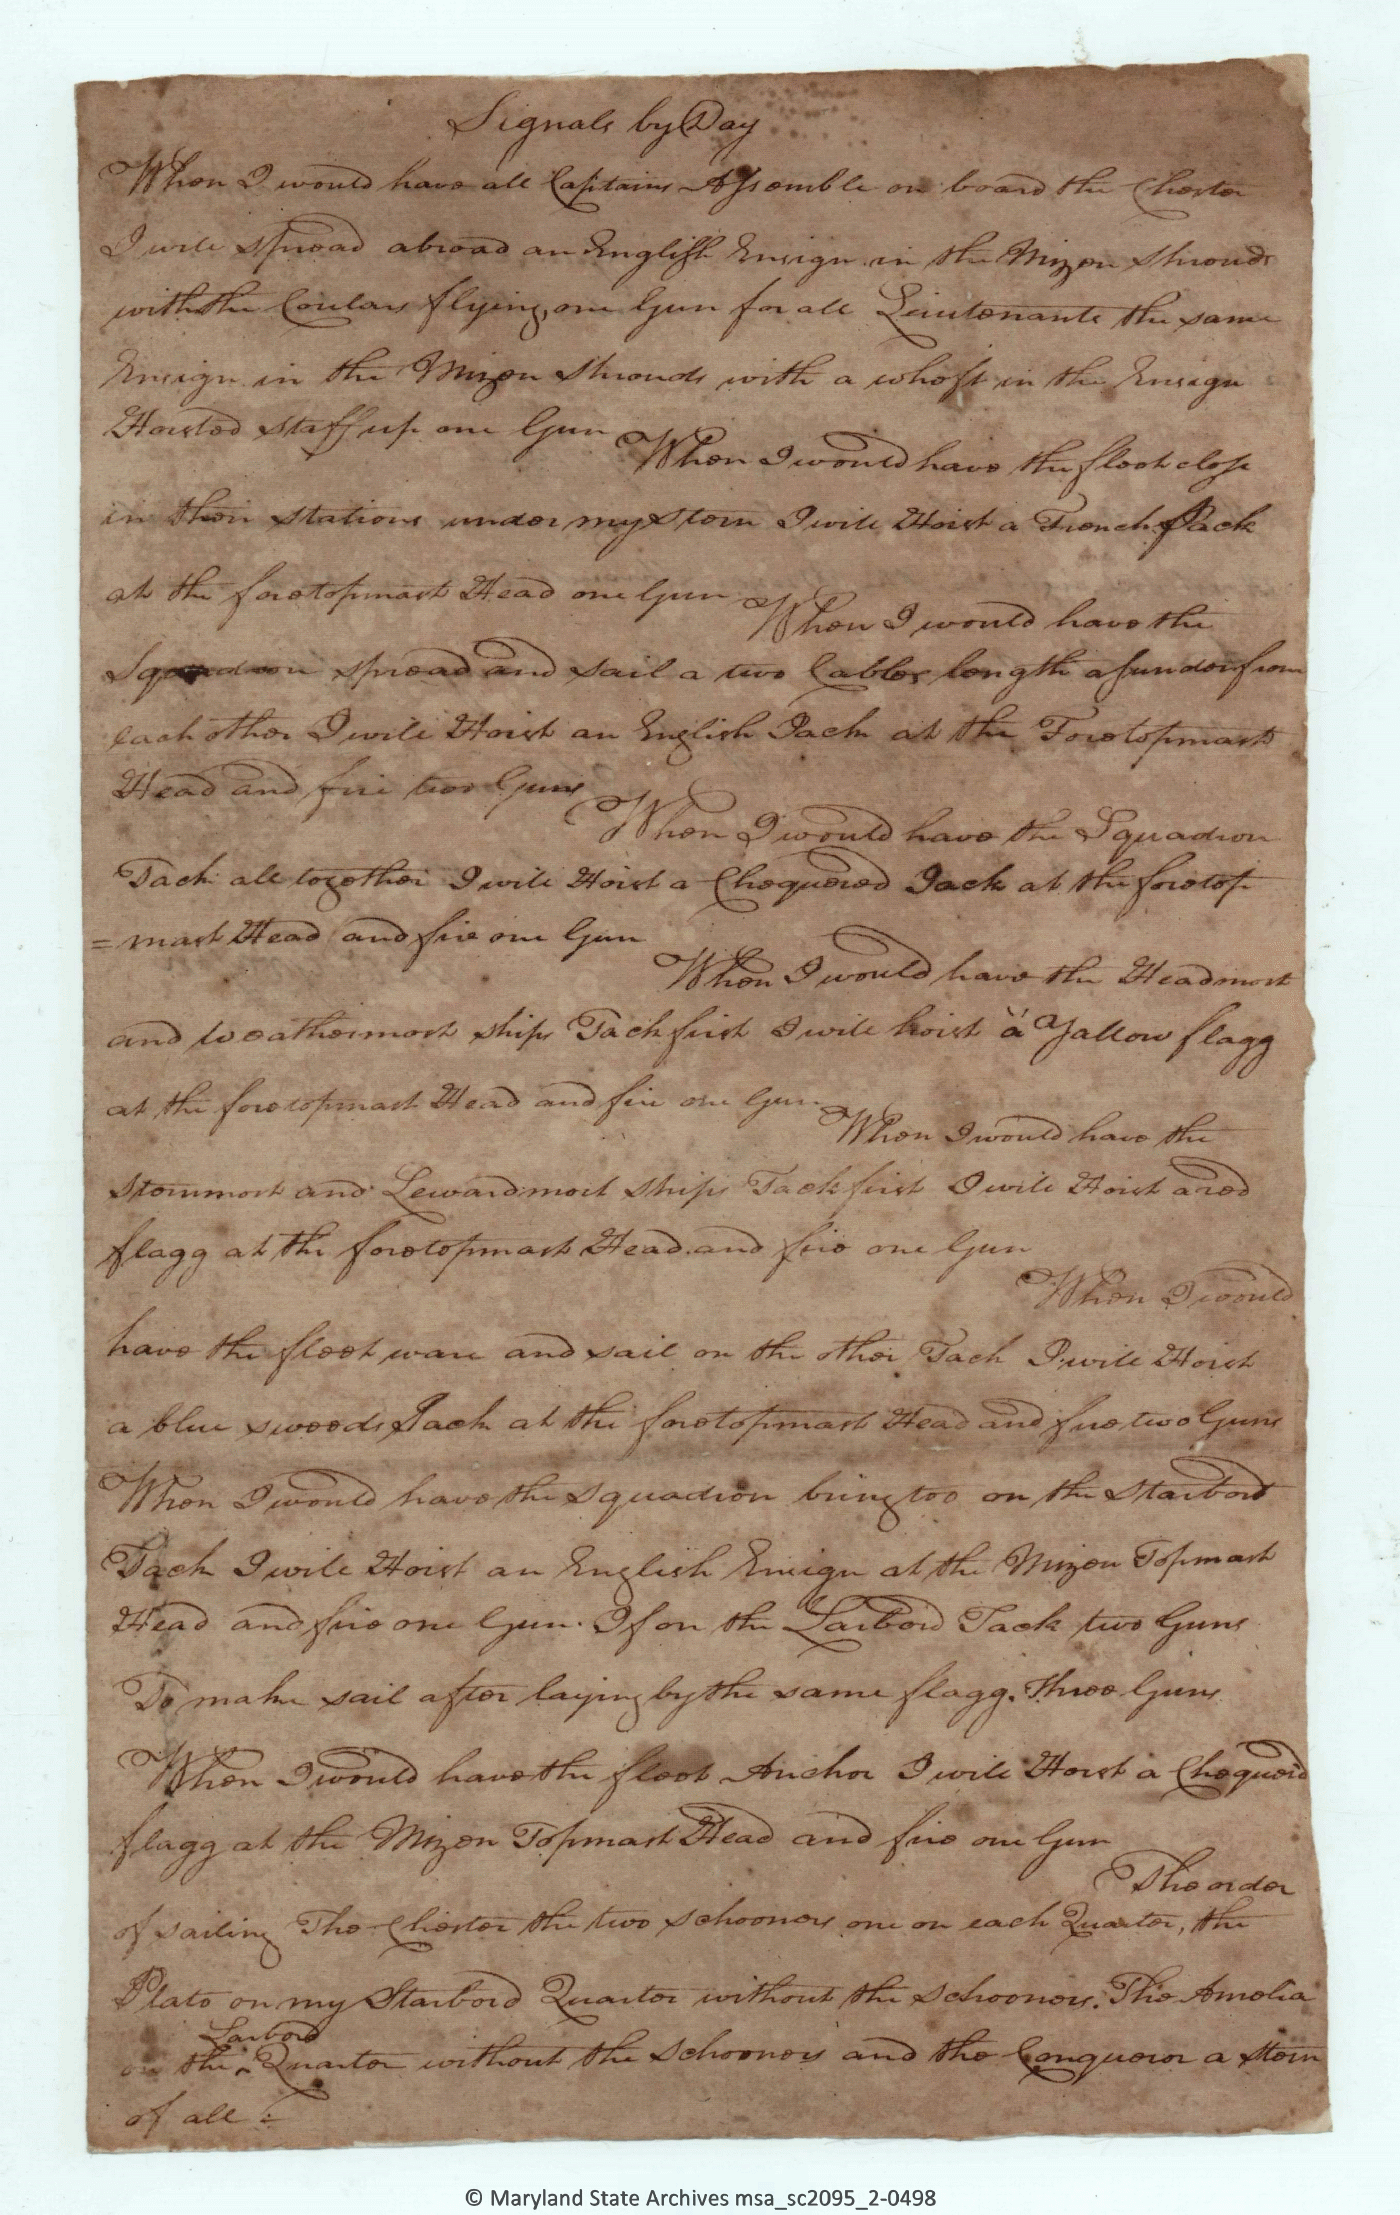 Signals by Day
When I would have all Captains Assemble on board the Chester
I will spread abroad an English Ensign in the Mizen shrouds
with the Coulars flying, one Gun for all Lieutenants the same
Ensign in the Mizen Shrouds with a whoft in the Ensign
Hoisted staff up one Gun
When I would have the fleet close
in their stations under my stern I will Hoist a French Jack
at the foretopmast Head one Gun
When I would have the
Squadron spread and sail a two Cables length asunder from
each other I will Hoist an English Jack at the Foretopmast
Head and fire two Guns
When I would have the Squadron
Tack all together I will Hoist a Chequered Jack at the foretop
= mast Head and fire one Gun
When I would have the Headmost
and weathermost ships Tack first I will hoist a Yallow flagg
at the foretopmast Head and fire one Gun
When I would have the
sternmost and Lewardmost ships Tack first I will Hoist a red
flagg at the foretopmast Head and fire one Gun
When I would
have the fleet ware and sail on the other Tack I will Hoist
a blue sweeds Jack at the foretopmast Head and fire two Guns
When I would have the squadron bring too on the Starbord
Tack I will Hoist an English Ensign at the Mizen Topmast
Head and fire one Gun. If on the Larbord Tack two Guns
To make sail after laying by the same flagg. three Guns
When I would have the fleet Anchor I will Hoist a Chequerd
flagg at the Mizen Topmast Head and fire one Gun
The order
of sailing The Chester the two schooners one on each Quarter, the
Plato on my Starbord Quarter without the schooners. The Amelia
Larbord
on the ^ Quarter without the schooners and the Conqueror a stern
of all :
© Maryland State Archives msa_sc2095_2-0498